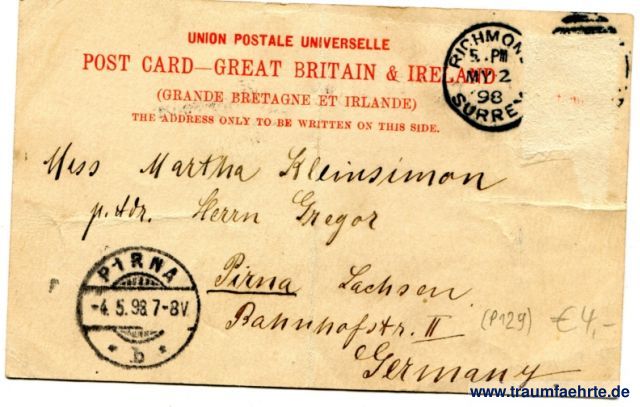 UNION POSTALE UNIVERSELLE
POST CARD—GREAT BRITAIN & IRELAND
(GRANDE BRETAGNE ET IRLANDE)
THE ADDRESS ONLY TO BE WRITTEN ON THIS SIDE.
RICHMON
5. PM
MY 2
98
SURREY
Miss Martha Kleinsimon
p. Adr. Herrn Gregor
Pirna Sachsen
Bahnhofstr. II
Germany
PIRNA
-4.5.98.7-8V.
* b *
(P129) €4,-
www.traumfaehrte.de